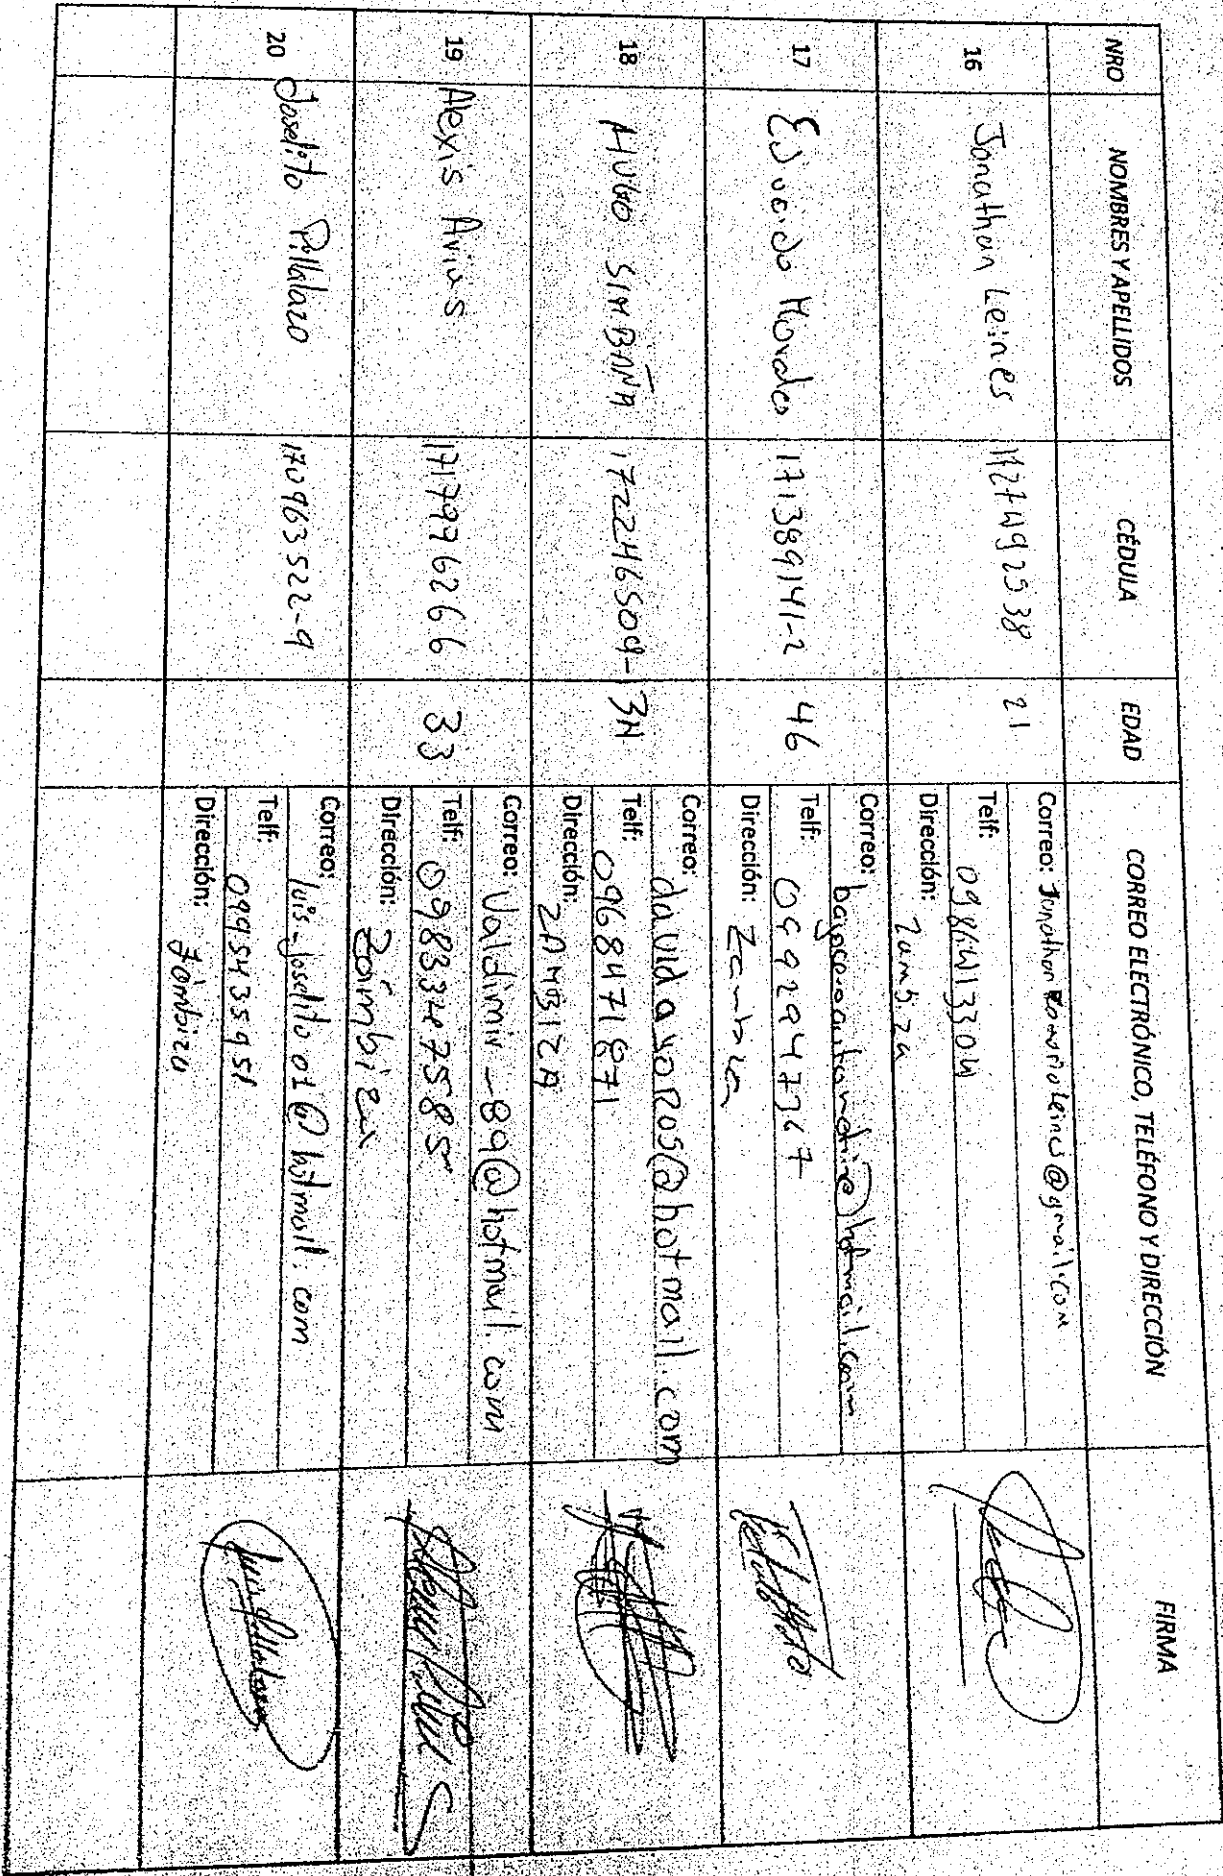 NRO NOMBRES Y APELLIDOS CÉDULA EDAD CORREO ELECTRÓNICO, TELÉFONO Y DIRECCIÓN FIRMA
16 Jonathan Leines 21
Correo:
Telf:
Dirección: Zambiza
17 171389141-2 46
Correo:
Telf: 0992947367
Dirección: Zambiza
18 HUGO SIMBAÑA 172246509-3 34
Correo: davidayoros@hotmail.com
Telf: 0968471871
Dirección: ZAMBIZA
19 Alexis Arias 1717996266 33
Correo: Valdimir-89@hotmail.com
Telf: 0983347585
Dirección: Zámbiza
20 Joselito Pillalazo 170963522-9
Correo: luis-joselito01@hotmail.com
Telf: 0995435951
Dirección: Zámbiza